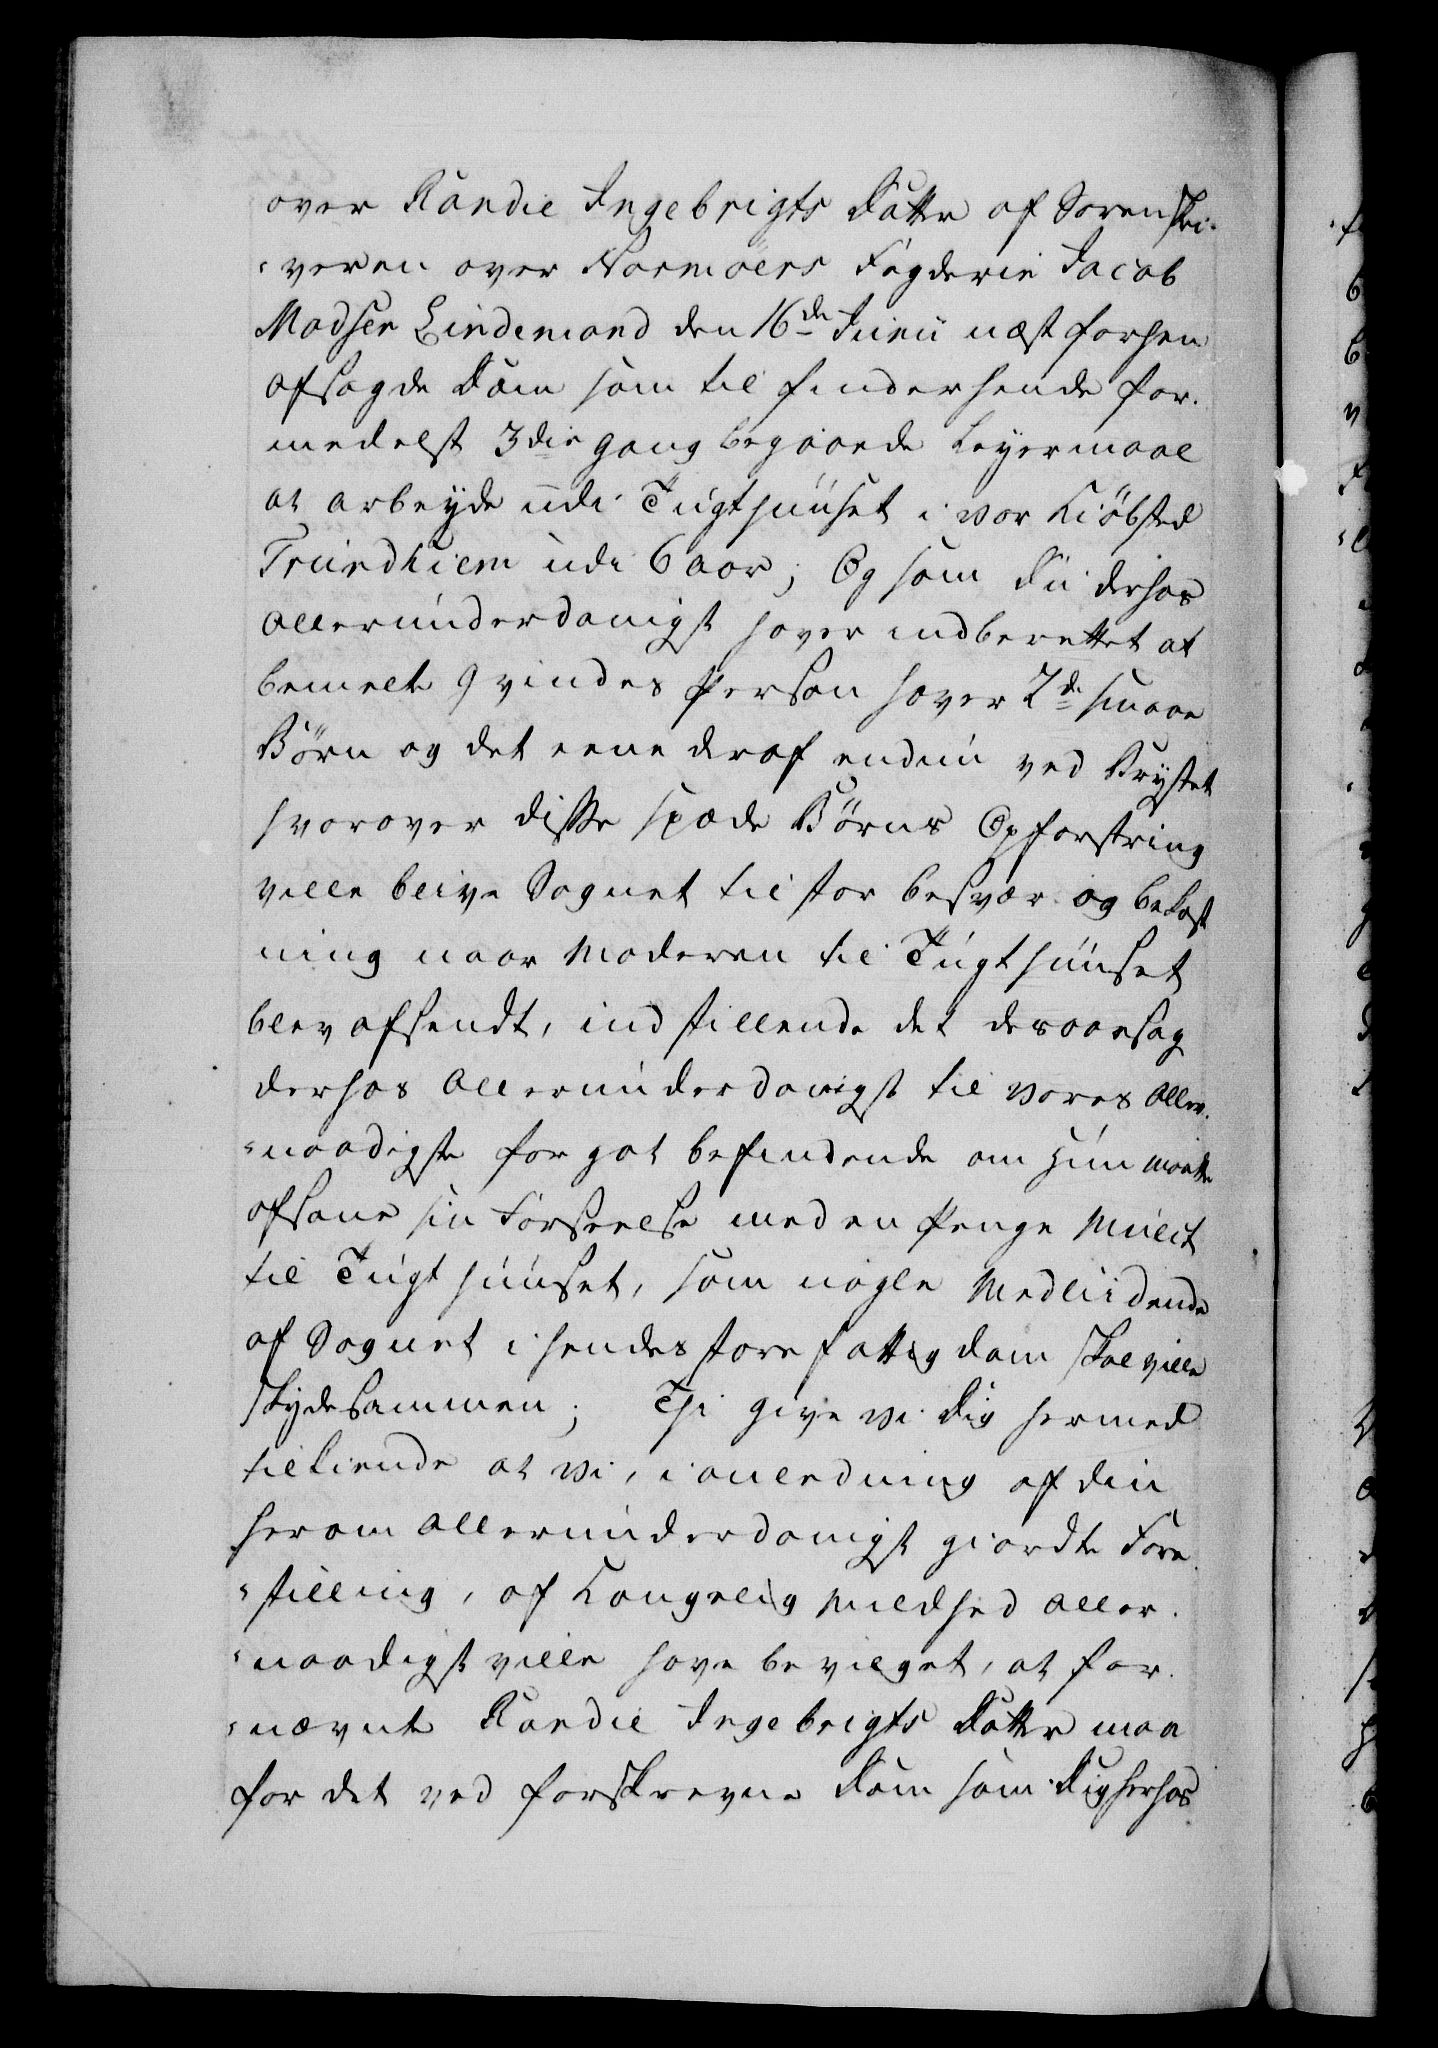 over Randie Ingebrigts Datter af Sorenskri-
-veren over Normöers Fogderie Jacob
Madsen Lindemand den 16de Junii næst forhen
afsagde Dom som tilfinder hende for-
medelst 3die gang begaaede Leyermaal
at arbeyde udi Tugthuuset i vor Kiöbsted
Trundhiem udi 6 aar; Og som du derhos
allerunderdanigst haver indberettet at
bemelte Qvindes Person haver 2de smaae
Börn og det eene deraf endnu ved Brystet
hvorover disse spæde Börns Opfostring
ville blive Sognet til stor besvær og bekost
ning naar Moderen til Tugthuuset
blev afsendt, indstillende det desaarsag
derhos allerunderdanigst til vores aller-
-naadigste for got befindende om hun maatte
afsone sin Forseelse med en Penge Mulct
til Tugthuuset, som nogle Medliidende
af Sognet i hendes store fattigdom skal ville
skyde sammen; Thi give vi dig hermed
tilkiende at vi, i anledning af din
herom allerunderdanigst giordte Fore
-stilling, af Kongelig Mildhed aller-
-naadigst ville have bevilget, at for-
-nævnte Randie Ingebrigts Datter maa
for det ved forskrevne Dom som dig herhos